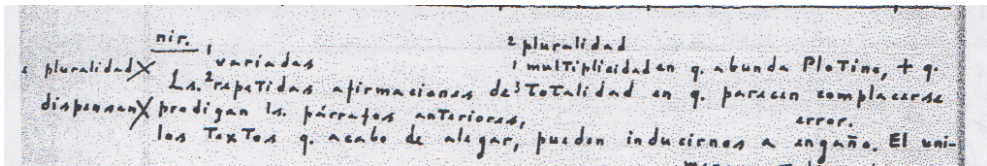 nir.
1 variadas 2 pluralidad
pluralidad X 1 multiplicidad en q. abunda Plotino, + q.
Ls. 2 repetidas afirmaciones de 3 totalidad en q. parecen complacerse
dispensan X prodigan ls. párrafos anteriores, error.
los textos q. acabo de alegar, pueden inducirnos a engaño. El uni-